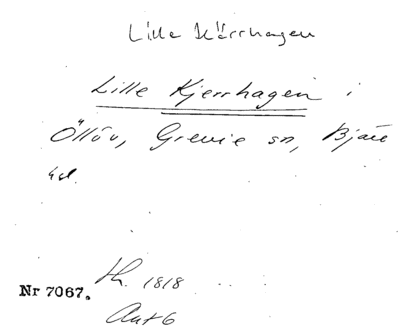 Lille Kärrhagen
Lille Kjerrhagen i
Öllöv, Grevie sn, Bjäre
hd.
Nr 7067. th. 1818
Akt 6